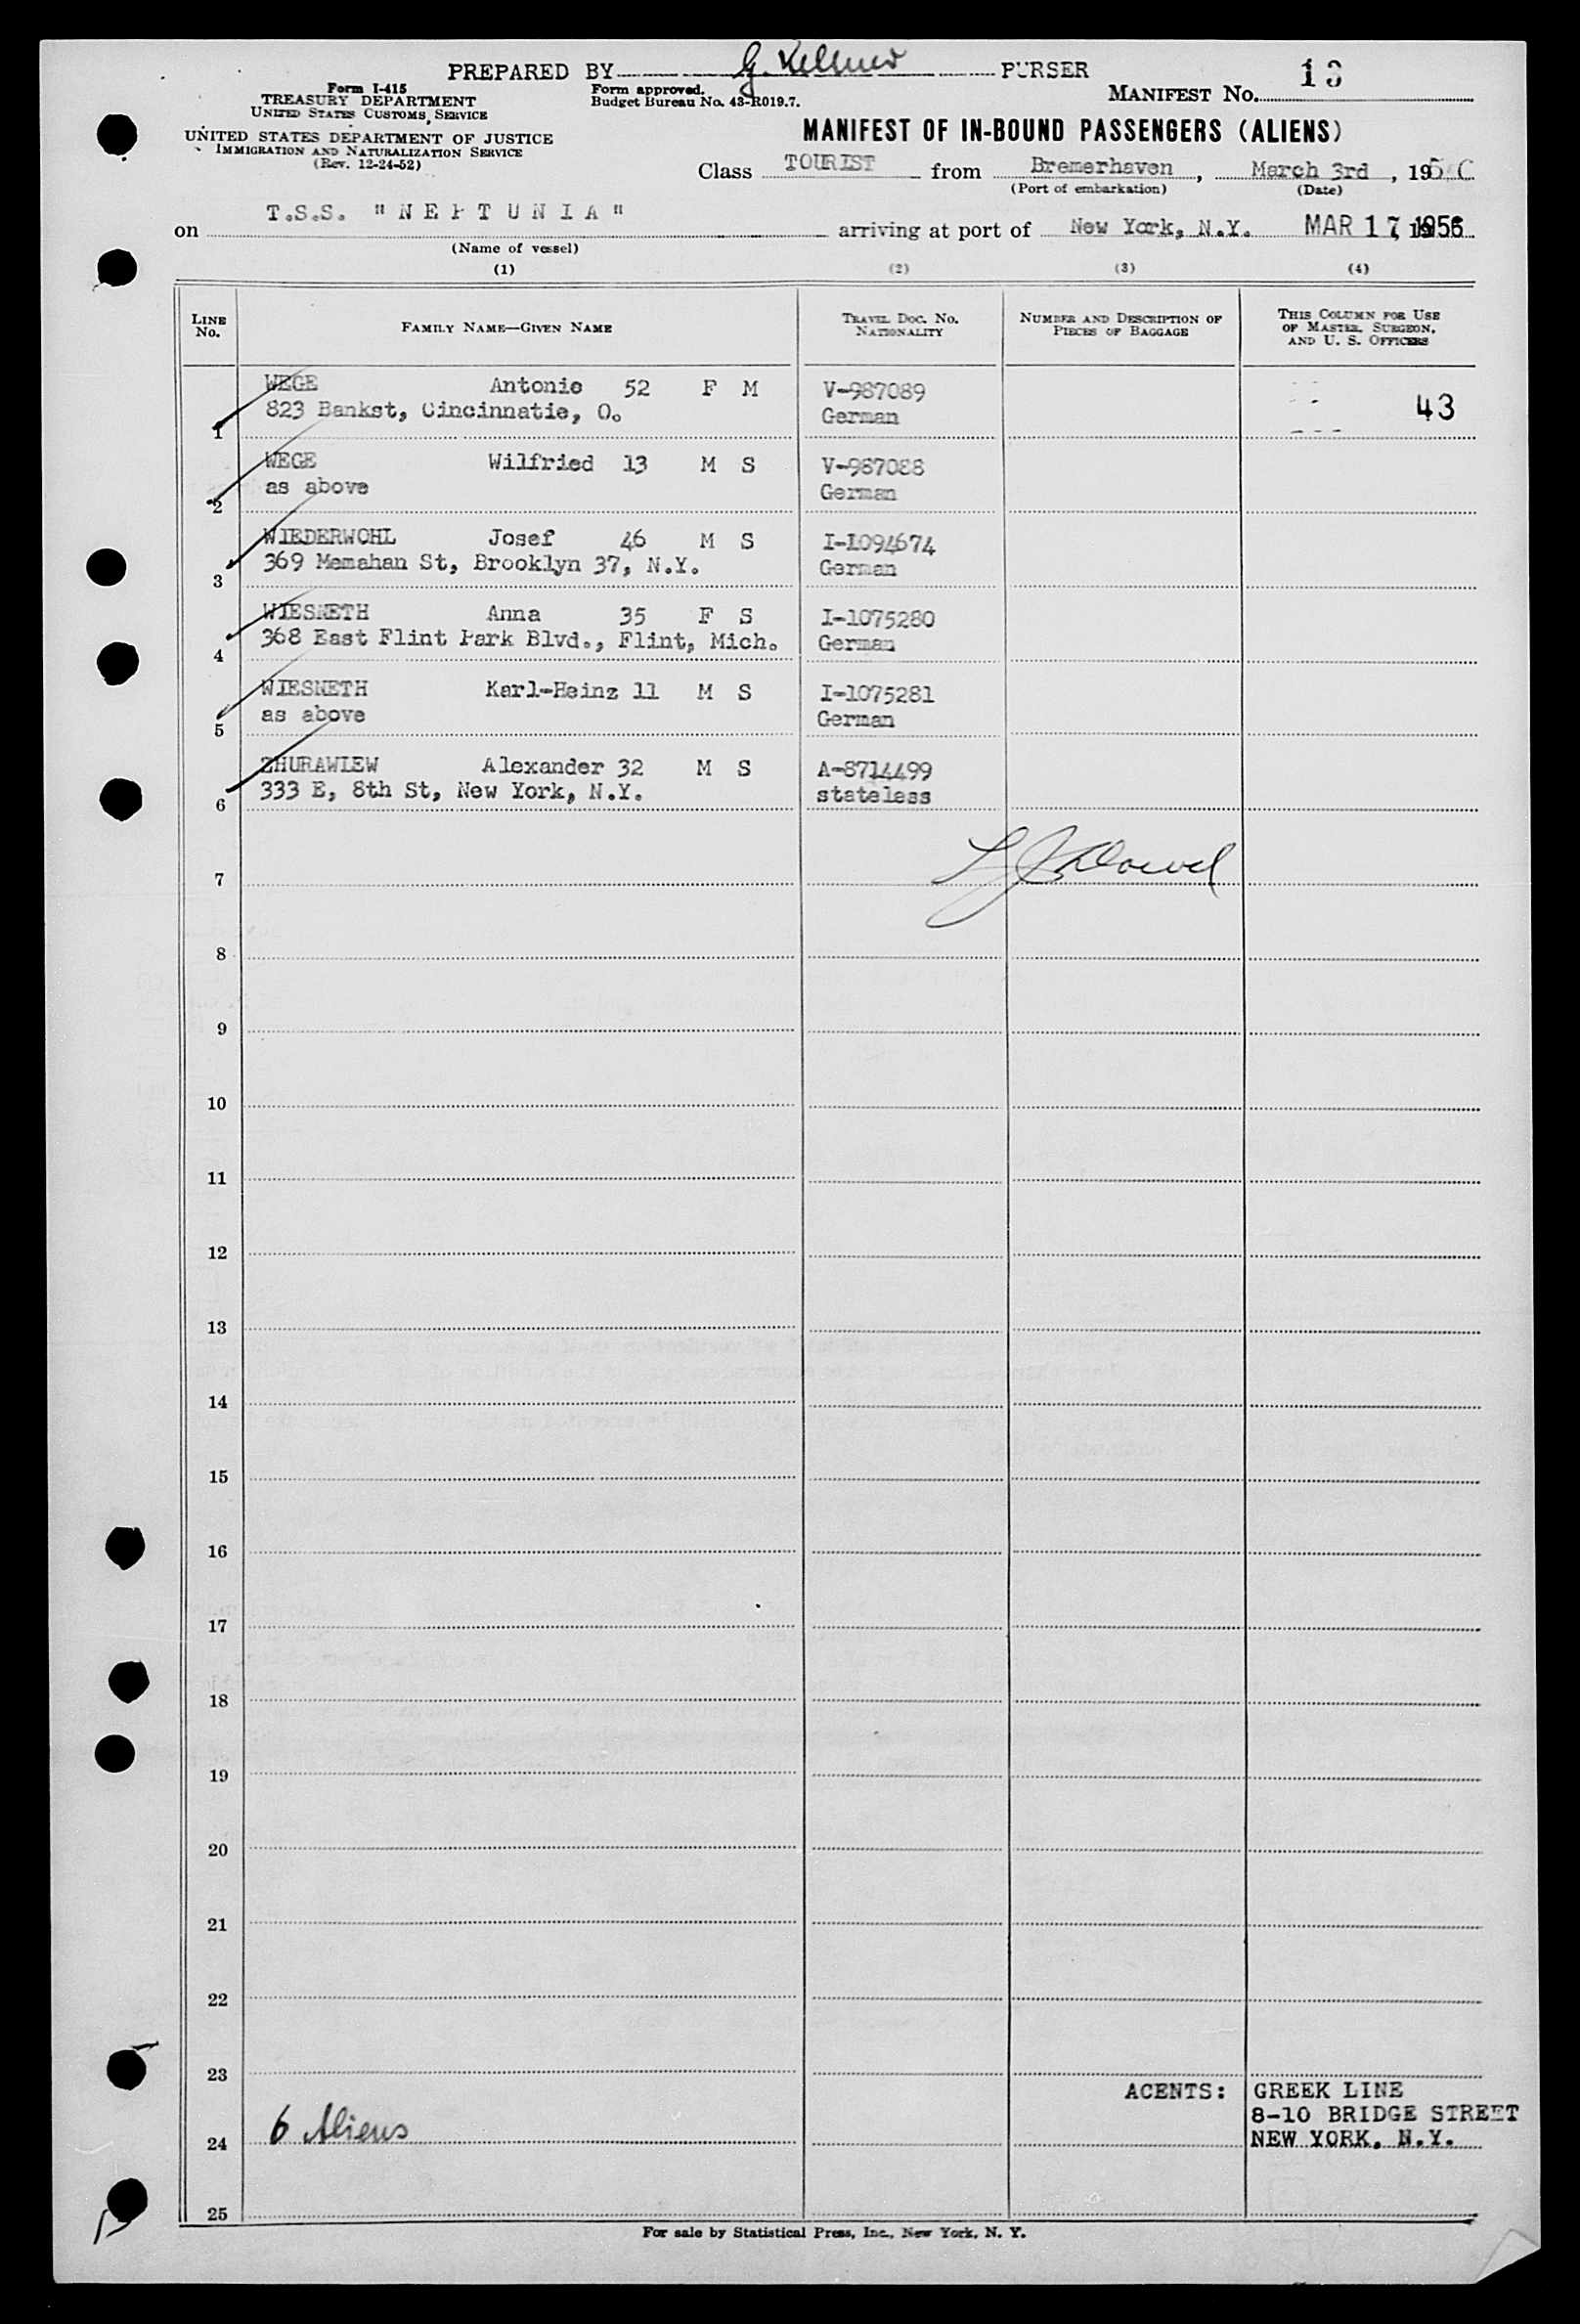 PREPARED BY G. Kellner PURSER
Form I-415
TREASURY DEPARTMENT
UNITED STATES CUSTOMS SERVICE
UNITED STATES DEPARTMENT OF JUSTICE
IMMIGRATION AND NATURALIZATION SERVICE
(Rev. 12-24-52)
Form approved.
Budget Bureau No. 43-R019.7.
MANIFEST NO. 13
MANIFEST OF IN-BOUND PASSENGERS (ALIENS)
Class TOURIST from Bremerhaven, March 3rd, 195
(Port of embarkation) (Date)
on T.S.S. "NEPTUNIA" arriving at port of New York, N.Y. MAR 17, 1956
(Name of vessel)
(1) (2) (3) (4)
LINE No. FAMILY NAME—GIVEN NAME TRAVEL DOC. No. NATIONALITY NUMBER AND DESCRIPTION OF PIECES OF BAGGAGE THIS COLUMN FOR USE OF MASTER, SURGEON, AND U. S. OFFICERS
WEGE Antonie 52 F M V-987089 43
1 823 Bankst, Cincinnatie, O. German
WEGE Wilfried 13 M S V-987088
2 as above German
WIEDERWOHL Josef 46 M S I-1094674
3 369 Memahan St, Brooklyn 37, N.Y. German
WIESNETH Anna 35 F S I-1075280
4 368 East Flint Park Blvd., Flint, Mich. German
WIESNETH Karl-Heinz 11 M S I-1075281
5 as above German
ZHURAWLEW Alexander 32 M S A-8714499
6 333 E, 8th St, New York, N.Y. stateless
7
8
9
10
11
12
13
14
15
16
17
18
19
20
21
22
23
AGENTS: GREEK LINE
8-10 BRIDGE STREET
24 6 Aliens NEW YORK, N.Y.
25
For sale by Statistical Press, Inc., New York, N. Y.